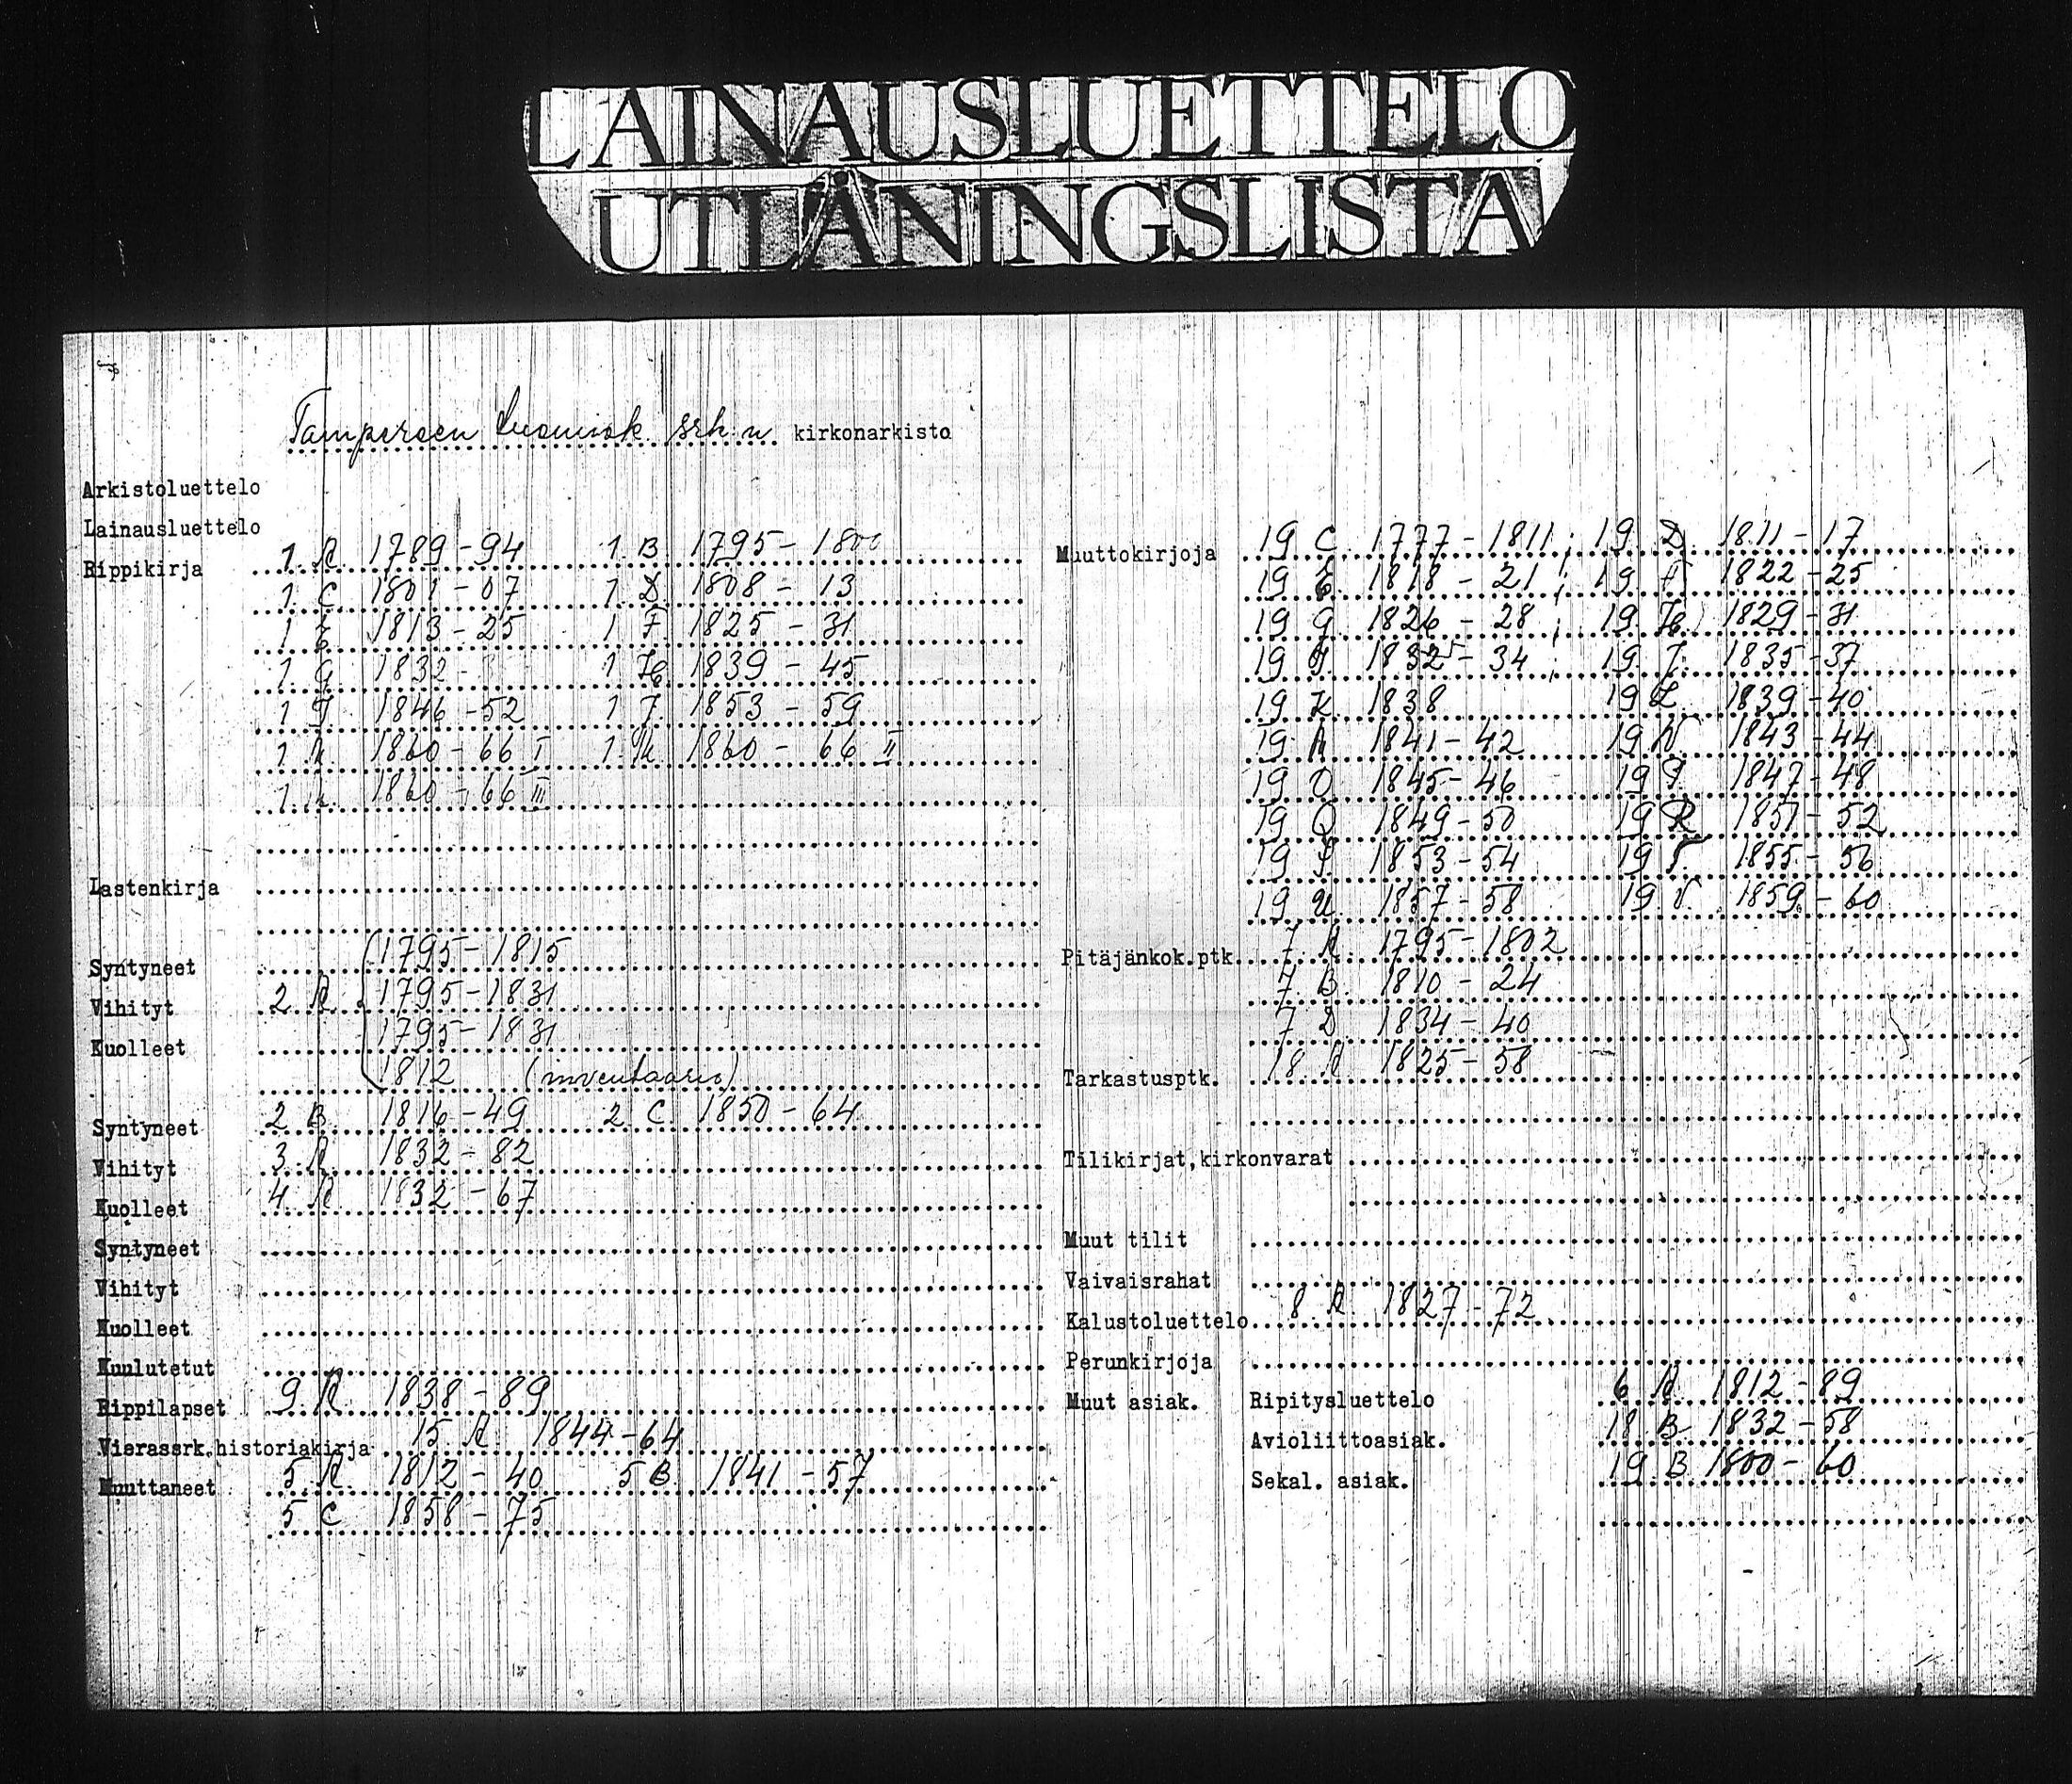 LAINAUSLUETTELO
UTLÅNINGSLISTA
Tampereen tuomiok. srk:n kirkonarkisto
Arkistoluettelo
Lainausluettelo
Rippikirja 1 A 1789-94 1 B 1795-1800
1 C 1801-07 1 D 1808-13
1 E 1813-25 1 F 1825-31
1 G 1832- 1 H 1839-45
1 I 1846-52 1 J 1853-59
1 K 1860-66 I 1 K 1860-66 II
1 K 1860-66 III
Lastenkirja
Syntyneet 1795-1815
Vihityt 2 A 1795-1831
Kuolleet 1795-1831
1812 (inventaario)
Syntyneet 2 B 1816-49 2 C 1850-64
Vihityt 3 A 1832-82
Kuolleet 4 A 1832-67
Syntyneet
Vihityt
Kuolleet
Kuulutetut
Rippilapset 9 A 1838-89
Vierassrk.historiakirja 15 A 1844-64
Muuttaneet 5 A 1812-40 5 B 1841-57
5 C 1858-75
Muuttokirjoja 19 C 1777-1811; 19 D 1811-17
19 E 1818-21; 19 F 1822-25
19 G 1826-28; 19 H 1829-31
19 I 1832-34; 19 J 1835-37
19 K 1838 19 L 1839-40
19 M 1841-42 19 N 1843-44
19 O 1845-46 19 P 1847-48
19 Q 1849-50 19 R 1851-52
19 S 1853-54 19 T 1855-56
19 U 1857-58 19 V 1859-60
Pitäjänkok.ptk. 7 A 1795-1802
7 B 1810-24
7 D 1834-40
Tarkastusptk. 18 A 1825-58
Tilikirjat,kirkonvarat
Muut tilit
Vaivaisrahat
Kalustoluettelo 8 A 1827-72
Perunkirjoja
Muut asiak. Ripitysluettelo 6 A 1812-89
Avioliittoasiak. 18 B 1832-58
Sekal. asiak. 19 B 1800-60